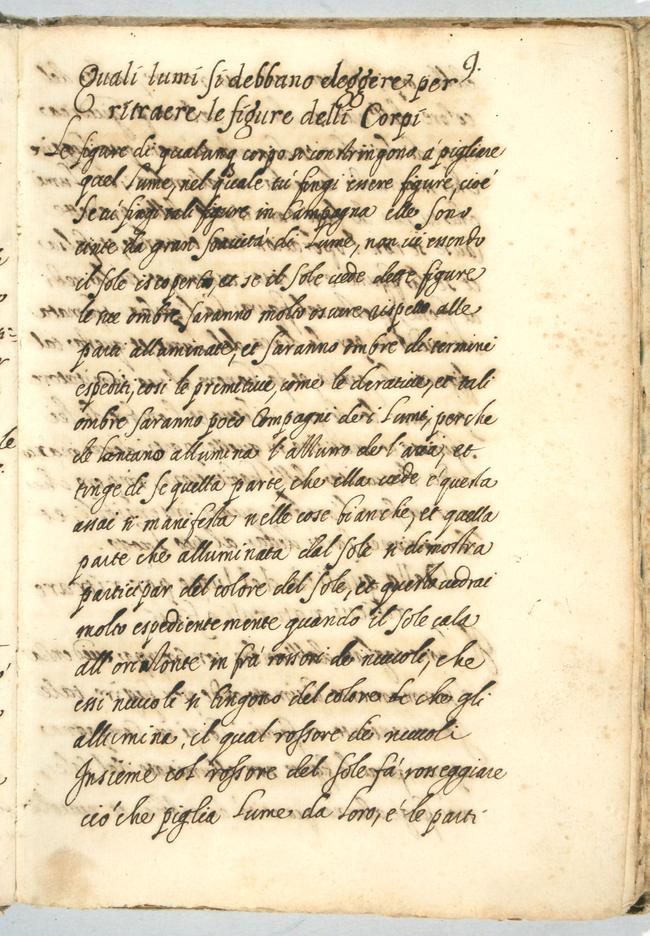 9.
Quali lumi si debbano eleggere per
ritraere le figure delli Corpi
Le figure di qualunq corpo si constringono á pigliare
quel Lume, nel quale tú fingi essere figure, cioé
se tú fingi tali figure in Campagna elle sono
cinte da gran somità di Lume, non vi essendo
il sole iscoperto, et se il sole vede dette figure
le sue ombre saranno molto oscure rispetto alle
parti alluminate, et saranno ombre di termini
espediti, cosi le primitive, come le dirativa, et tali
ombre saranno poco Compagni de i Lumi, perche
de lontano allumina l'azzurro del'aria, et
tinge di se quella parte, che ella vede é questa
assai si manifesta nelle cose bianche, et quella
parte che alluminata dal sole si dimostra
participar del colore del sole, et questo vedrai
molto espedientemente quando il sole cala
all'orizonte in frá rossori de nuvoli, che
essi nuvoli si tingono del colore che gli
allumina, il qual rossore de nuvoli
Insieme col rossore del sole fá rosseggiare
ció che piglia Lume da Loro, é le parti